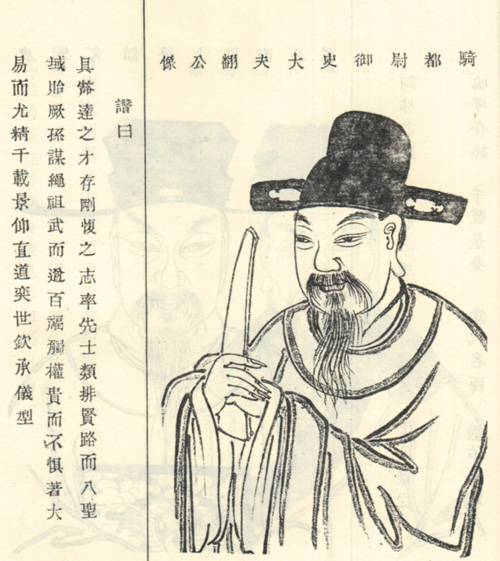 騎都尉御史大夫翻公像
讚曰
具達之才存剛愎之志率先士類排賢路而入聖
域貽厥孫謀繩祖武而邀百福觸權貴而不惧著大
易而尤精千載景仰直道奕世欽承儀型